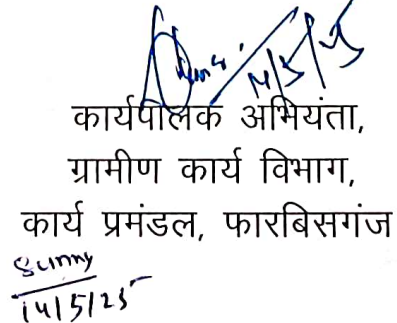 14/5/25
कार्यपालक अभियंता,
ग्रामीण कार्य विभाग,
कार्य प्रमंडल, फारबिसगंज
Sunny
14/5/25